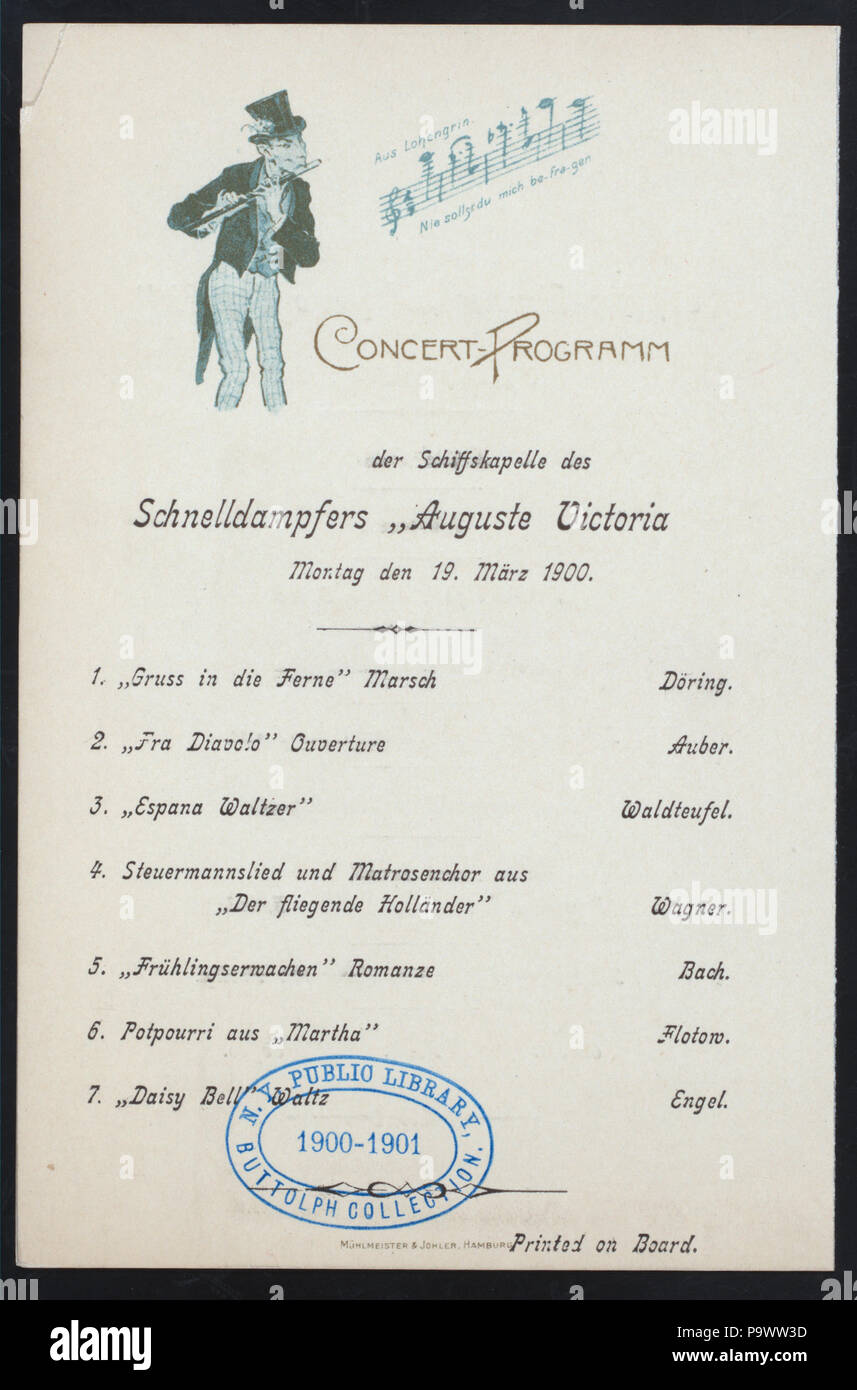 Aus Lohengrin.
Nie sollst du mich be-fra-gen
CONCERT-PROGRAMM
der Schiffskapelle des
Schnelldampfers „Auguste Victoria
Montag den 19. März 1900.
1. „Gruss in die Ferne” Marsch Döring.
2. „Fra Diavolo” Ouverture Auber.
3. „Espana Waltzer” Waldteufel.
4. Steuermannslied und Matrosenchor aus
„Der fliegende Holländer” Wagner.
5. „Frühlingserwachen” Romanze Bach.
6. Potpourri aus „Martha” Flotow.
7. „Daisy Bell” Waltz Engel.
N. Y. PUBLIC LIBRARY,
1900-1901
BUTTOLPH COLLECTION.
MÜHLMEISTER & JOHLER, HAMBURG
Printed on Board.
alamy
a
alamy
Image ID: P9WW3D
www.alamy.com